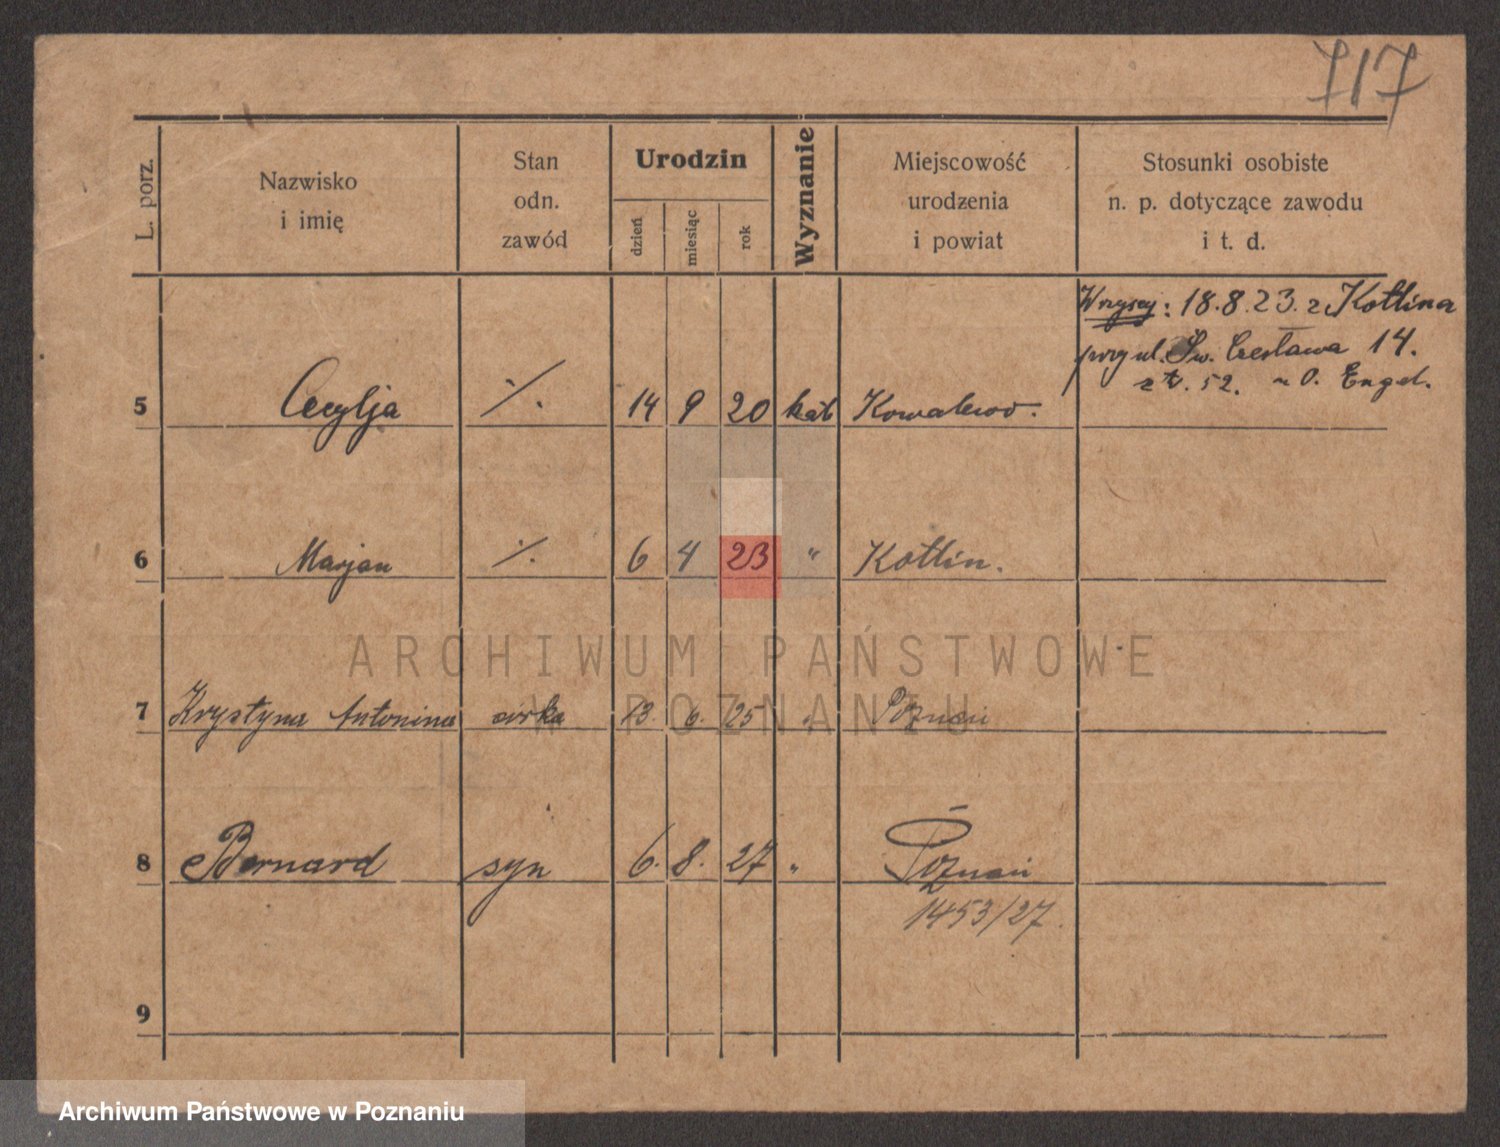 717
L. porz.
Nazwisko
i imię
Stan
odn.
zawód
Urodzin
dzień
miesiąc
rok
Wyznanie
Miejscowość
urodzenia
i powiat
Stosunki osobiste
n. p. dotyczące zawodu
i t. d.
Wszyscy: 18.8.23. z Kotlina
przy ul. Św. Czesława 14.
52. u O. Engel.
5 Cecylja ./. 14 9 20 kat Kowalewo.
6 Marjan ./. 6 4 23 " Kotlin.
ARCHIWUM PAŃSTWOWE
W POZNANIU
7 Krystyna Antonina córka 13. 6. 25 " Poznań
8 Bernard syn 6. 8. 27 " Poznań
1453/27.
9
Archiwum Państwowe w Poznaniu